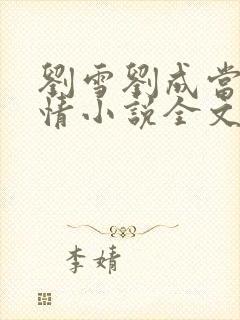 劉雪劉成當
情小說全文
李婧